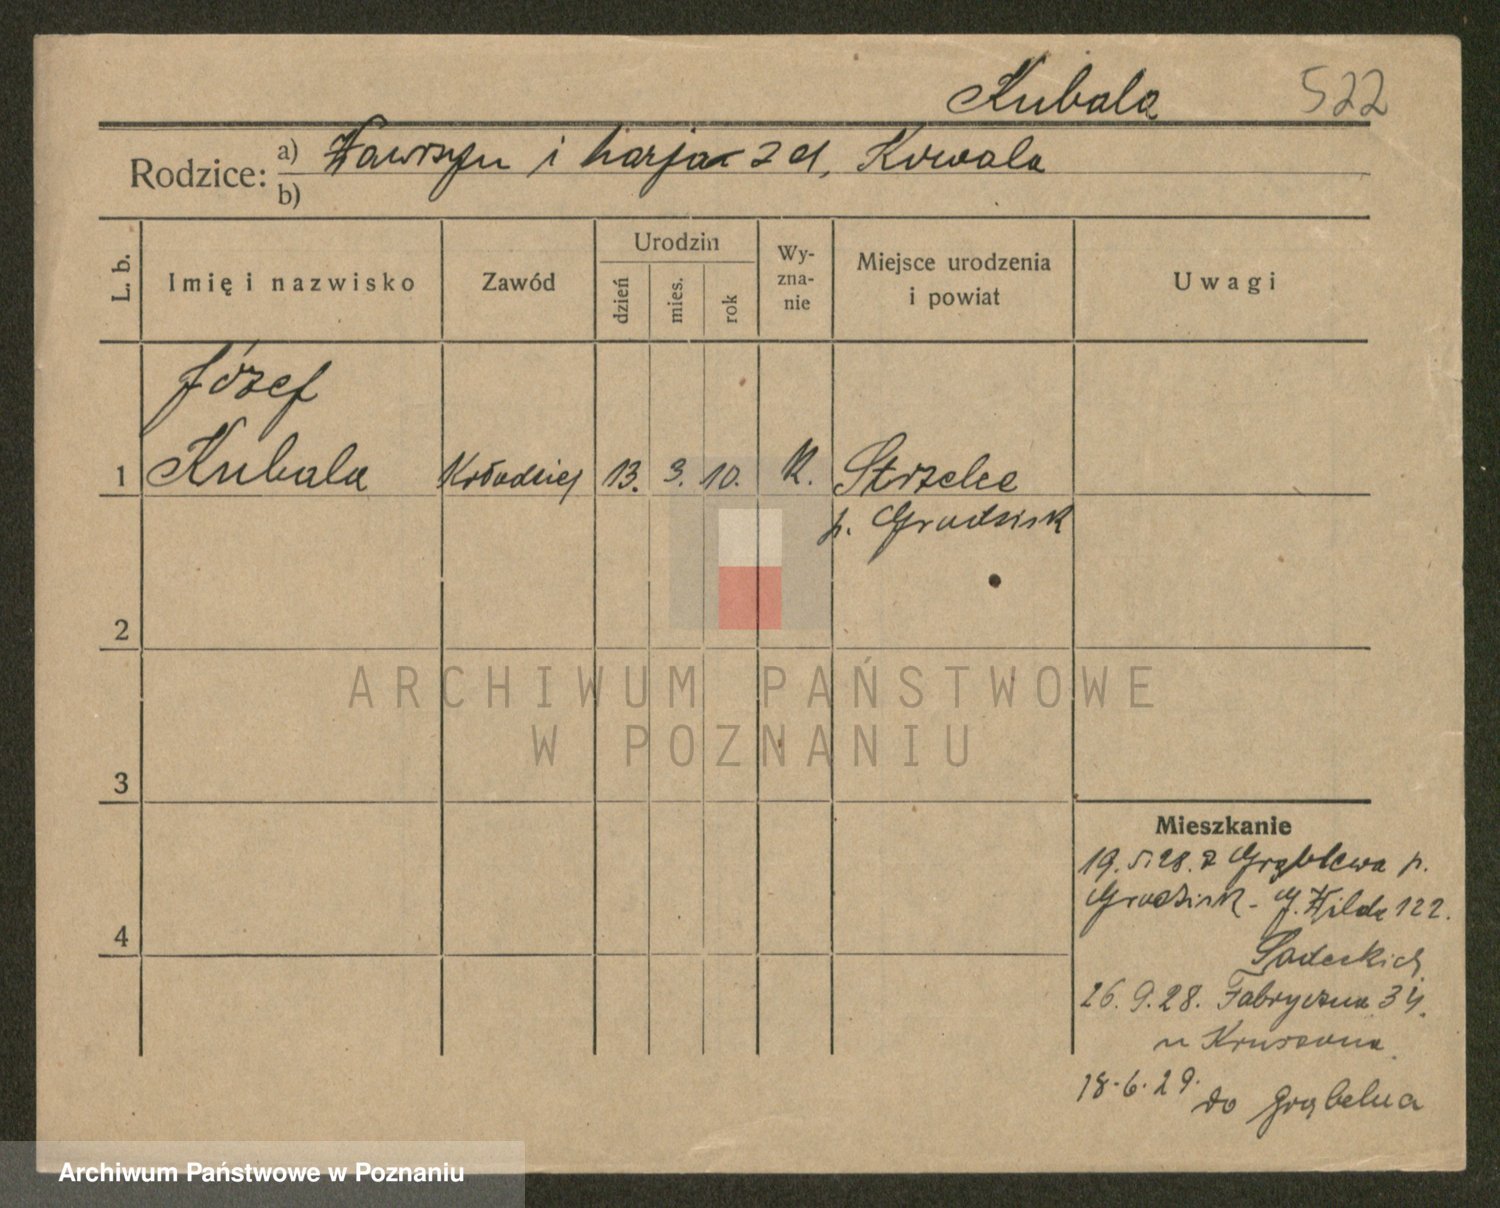 Kubala 522
Rodzice: a) Wawrzyn i Marja z d. Kowala
b)
L. b. Imię i nazwisko Zawód Urodzin dzień mies. rok Wy-zna-nie Miejsce urodzenia i powiat Uwagi
Józef
1 Kubala Kołodziej 13. 3. 10. K. Strzelce
p. Grodzisk
2
3
4
Mieszkanie
19. 5. 28. z Grąblewa p.
Grodzisk - G. Wilda 122.
Sadeckich
26. 9. 28. Fabryczna 34.
u
18.6.29. do
ARCHIWUM PAŃSTWOWE
W POZNANIU
Archiwum Państwowe w Poznaniu